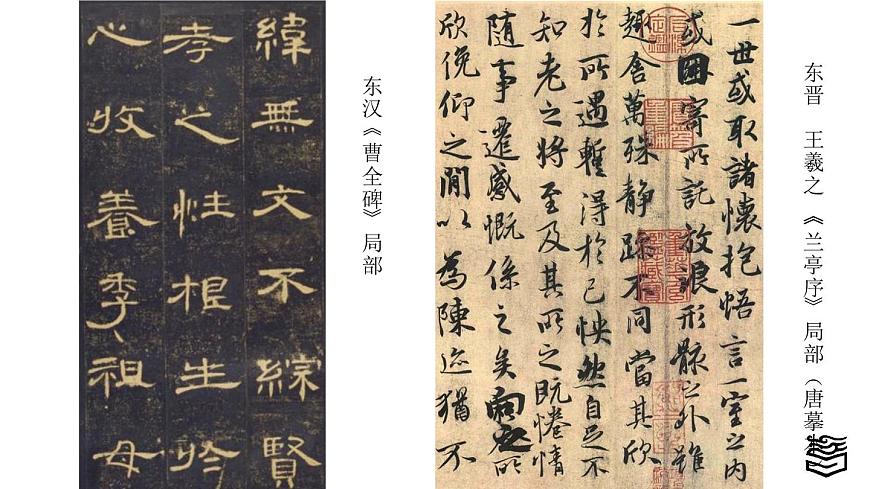 东汉《曹全碑》局部
緯無文不綜賢
孝之性根生於
心收養季祖母
东晋 王羲之 《兰亭序》局部（唐摹
一世或取諸懷抱悟言一室之內
或因寄所託放浪形骸之外雖
趣舍萬殊静躁不同當其欣
於所遇蹔得於己怏然自足不
知老之將至及其所之既惓情
隨事遷感慨係之矣向之所
欣俛仰之閒以為陳迹猶不